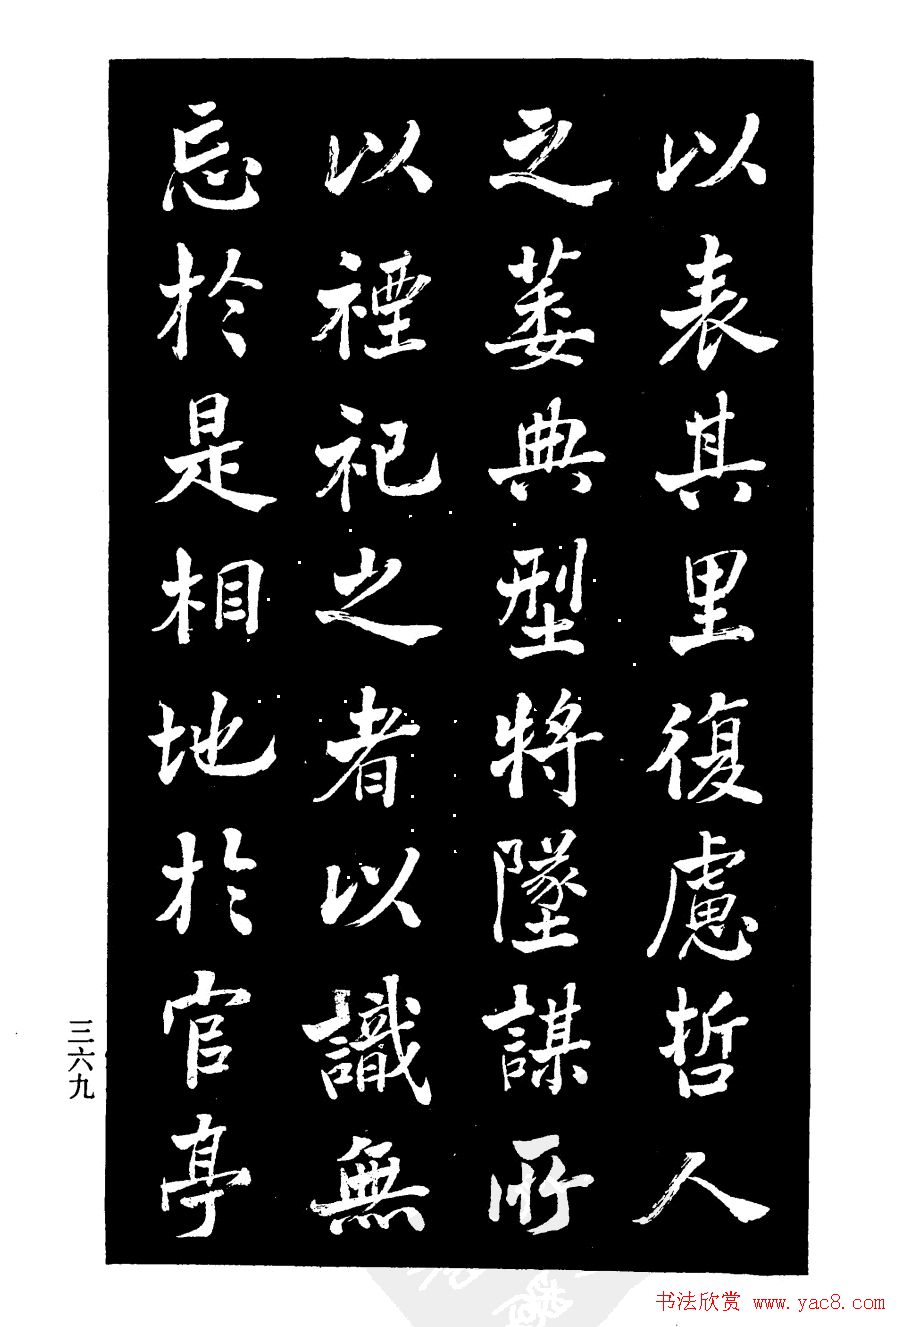 以表其里復慮哲人
之萎典型將墜謀所
以禋祀之者以識無
忘於是相地於官亭
三六九
书法欣赏 www.yac8.com